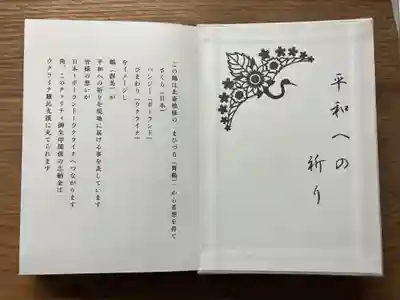 平和への
祈り
この鶴は 「まひづる(舞鶴)」から着想を得て
さくら(日本)
パンジー(ポーランド)
ひまわり(ウクライナ)
をイメージし
鶴(群馬)が
平和への祈りを現地に届ける事を表しています
皆様の想いが
日本~ポーランド~ウクライナへつながります
尚、このチャリティ御朱印関係の志納金は
ウクライナ難民支援に充てられます